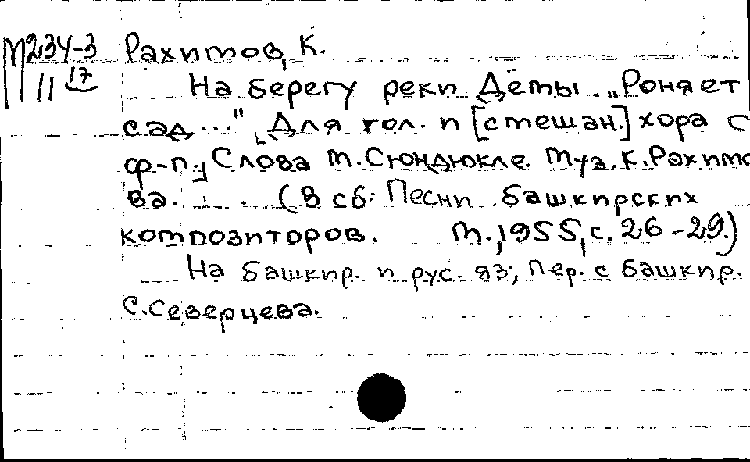 М234-3 Рахимов, К.
11 17 На берегу реки Дёмы. „Роняет
сад ..." [Для гол. и [смешан.] хора с
ф-п.] Слова М. Сюндюкле. Муз. К. Рахимо
ва. (В сб: Песни башкирских
композиторов. М., 1955, с. 26-29.)
На башкир. и рус. яз; Пер. с башкир.
С. Северцева.